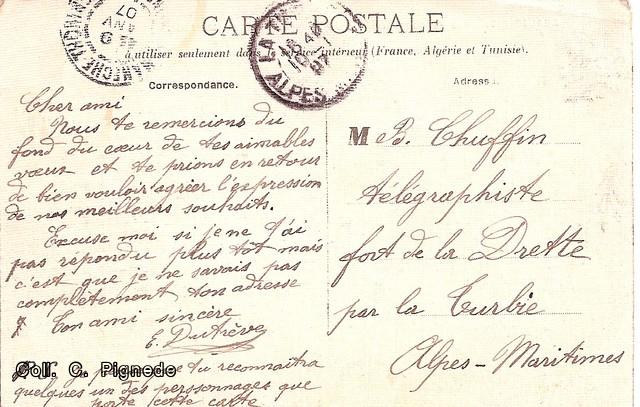 CARTE POSTALE
à utiliser seulement dans le service intérieur (France, Algérie et Tunisie).
Correspondance.
Adresse
Cher ami
Nous te remercions du
fond du cœur de tes aimables
vœux et te prions en retour
de bien vouloir agréer l'expression
de nos meilleurs souhaits.
Excuse moi si je ne t'ai
pas répondu plus tôt mais
c'est que je ne savais pas
complètement ton adresse
Ton ami sincère
E. Dutrève
tu reconnaîtra
quelques un des personnages que
porte cette carte
M B. Chuffin
télégraphiste
fort de la Drette
par la Turbie
Alpes-Maritimes
LA
ALPES
07
Coll. C. Pignede